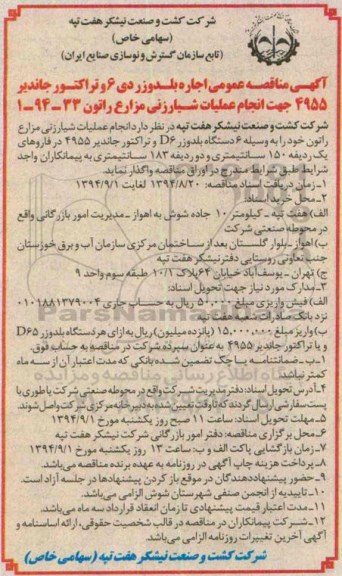 شرکت کشت و صنعت نیشکر هفت تپه
(سهامی خاص)
(تابع سازمان گسترش و نوسازی صنایع ایران)
آگهی مناقصه عمومی اجاره بلدوزر دی ۶ و تراکتور جاندیر
۴۹۵۵ جهت انجام عملیات شیارزنی مزارع راتون ۳۳-۹۴-۱
شرکت کشت و صنعت نیشکر هفت تپه در نظر دارد انجام عملیات شیارزنی مزارع
راتون خود را به وسیله ۶ دستگاه بلدوزر D۶ و تراکتور جاندیر ۴۹۵۵ در فاروهای
یک ردیفه ۱۵۰ سانتیمتری و دو ردیفه ۱۸۳ سانتیمتری به پیمانکاران واجد
شرایط طبق شرایط مندرج در اوراق مناقصه واگذار نماید.
۱- زمان دریافت اسناد مناقصه: ۱۳۹۴/۸/۲۰ لغایت ۱۳۹۴/۹/۱
۲- محل خرید اسناد:
الف) هفت تپه - کیلومتر ۱۰ جاده شوش به اهواز - مدیریت امور بازرگانی واقع
در محوطه صنعتی شرکت
ب) اهواز - بلوار گلستان بعد از ساختمان مرکزی سازمان آب و برق خوزستان
جنب تعاونی روستایی دفتر نیشکر هفت تپه
ج) تهران - یوسف آباد خیابان ۶۴ پلاک ۱۰/۱ طبقه سوم واحد ۹
۳- مدارک مورد نیاز جهت تحویل اسناد:
الف) فیش واریزی مبلغ ۵۰۰.۰۰۰ ریال به حساب جاری ۰۱۰۱۸۸۱۳۷۹۰۰۴
نزد بانک صادرات شعبه هفت تپه
ب) واریز مبلغ ۱۵.۰۰۰.۰۰۰ (پانزده میلیون) ریال به ازای هر دستگاه بلدوزر D۶۵
و یا تراکتور جاندیر ۴۹۵۵ به عنوان سپرده شرکت در مناقصه به حساب فوق.
۱-ب- ضمانتنامه یا چک تضمین شده بانکی که مدت اعتبار آن از سه ماه
کمتر نباشد.
۴- آدرس تحویل اسناد: دفتر مدیریت شرکت واقع در محوطه صنعتی شرکت یا طوری با
پست سفارشی ارسال گردند که تا وقت تعیین شده به دبیرخانه مرکزی شرکت واصل شوند.
۵- مهلت تحویل اسناد: ساعت ۱۱ صبح روز یکشنبه مورخ ۱۳۹۴/۹/۱
۶- محل برگزاری مناقصه: دفتر امور بازرگانی شرکت نیشکر هفت تپه
۷- زمان بازگشایی پاکت الف و ب: ساعت ۱۳ روز یکشنبه مورخ ۱۳۹۴/۹/۱
۸- پرداخت هزینه چاپ آگهی در روزنامه به عهده برنده مناقصه می‌باشد.
۹- حضور پیشنهاددهندگان در موقع باز کردن پیشنهادها در جلسه آزاد است.
۱۰- تاییدیه از انجمن صنفی شهرستان شوش الزامی می‌باشد.
۱۱- مدت اعتبار قیمت پیشنهادی تا زمان انعقاد قرارداد سه ماه می‌باشد.
۱۲- شرکت پیمانکاران در مناقصه در قالب شخصیت حقوقی، ارائه اساسنامه و
آگهی آخرین تغییرات روزنامه الزامی می‌باشد.
شرکت کشت و صنعت نیشکر هفت تپه (سهامی خاص)